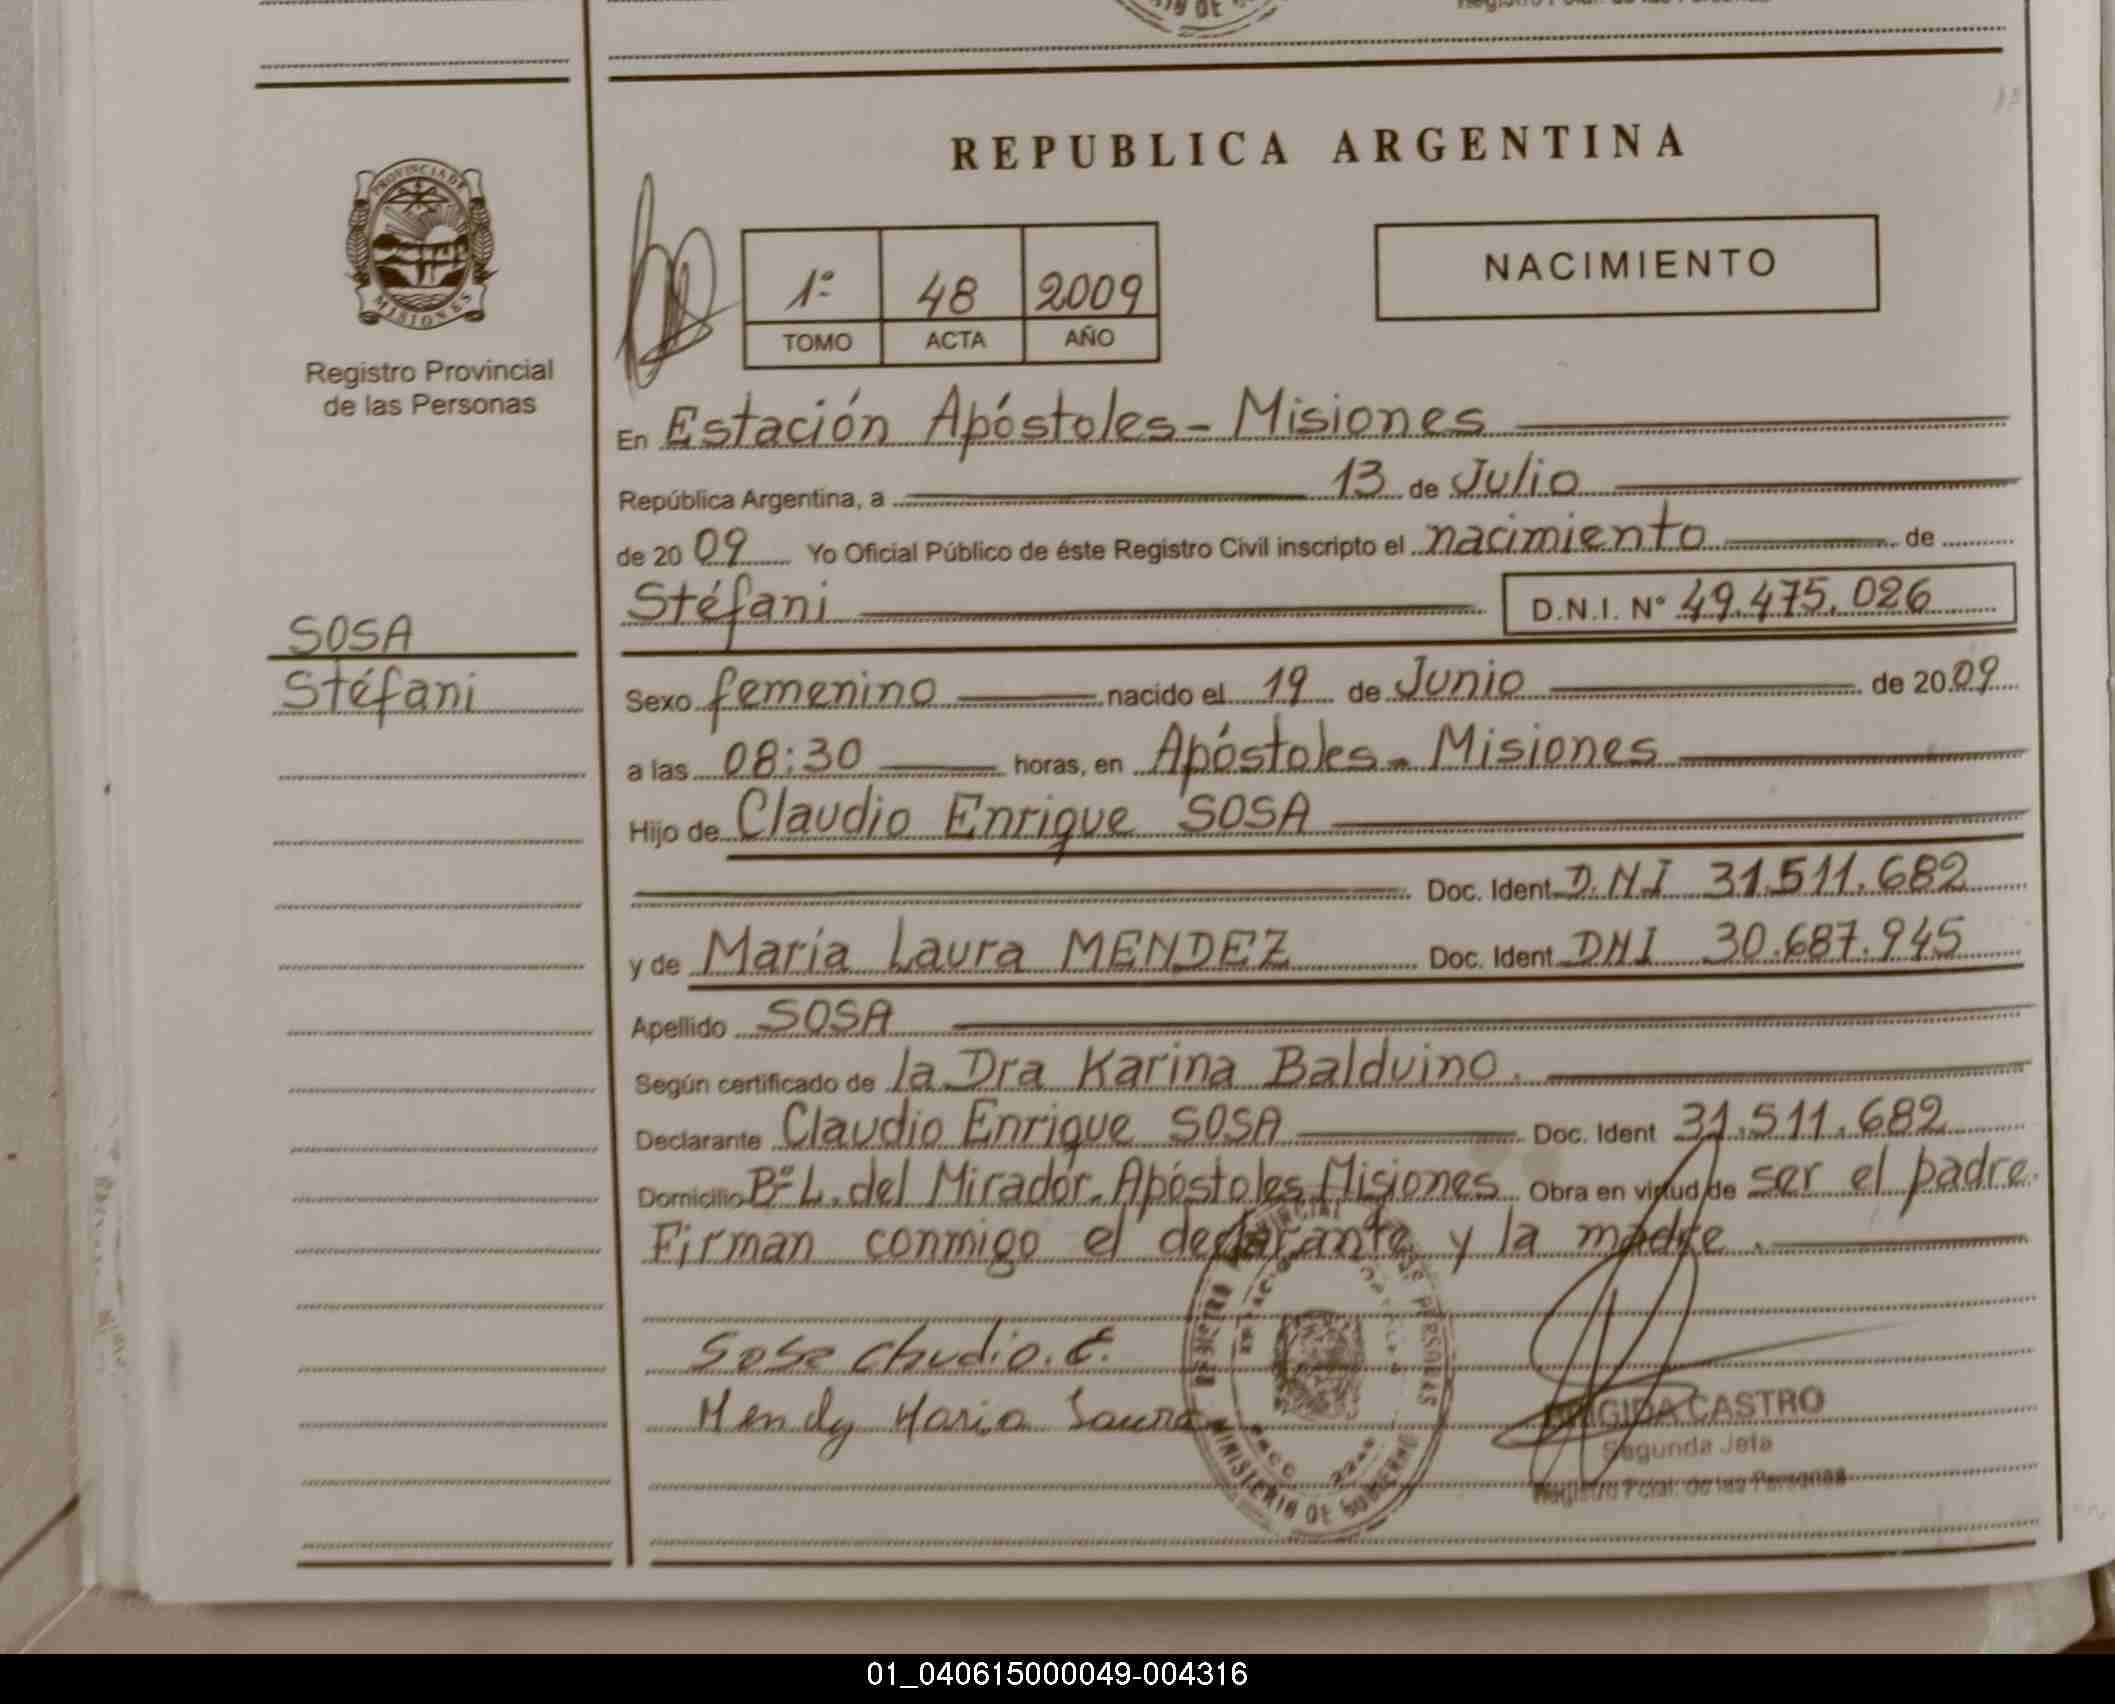 REPUBLICA ARGENTINA
PROVINCIA DE
MISIONES
Registro Provincial
de las Personas
1º 48 2009
TOMO ACTA AÑO
NACIMIENTO
En Estación Apóstoles - Misiones
República Argentina, a 13 de Julio
de 20 09 Yo Oficial Público de éste Registro Civil inscripto el nacimiento de
Stéfani D.N.I. Nº 49.475.026
SOSA
Stéfani
Sexo femenino nacido el 19 de Junio de 20 09
a las 08:30 horas, en Apóstoles - Misiones
Hijo de Claudio Enrique SOSA
Doc. Ident. D.N.I 31.511.682
y de María Laura MENDEZ Doc. Ident. DNI 30.687.945
Apellido SOSA
Según certificado de la Dra Karina Balduino.
Declarante Claudio Enrique SOSA Doc. Ident 31.511.682
Domicilio Bº L. del Mirador. Apóstoles Misiones Obra en virtud de ser el padre.
Firman conmigo el declarante y la madre.
Sosa Claudio. E.
Maria Laura
BRIGIDA CASTRO
Segunda Jefa
Registro Pcial. de las Personas
MINISTERIO DE GOBIERNO
01_040615000049-004316